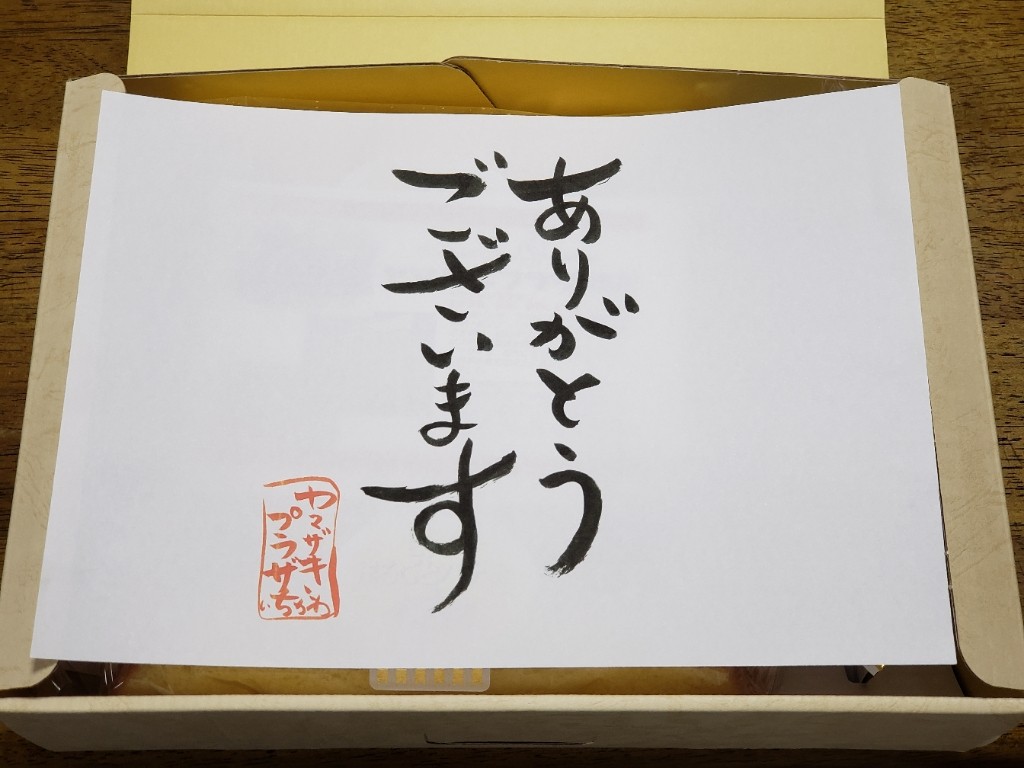 ありがとう
ございます
ヤマザキ
プラザ
いちかわ